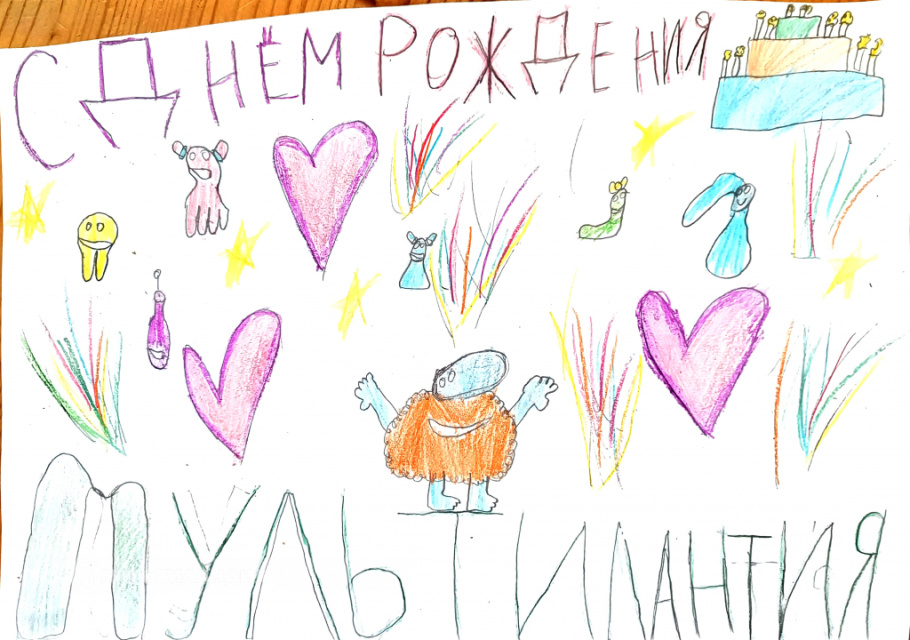 С ДНЁМ РОЖДЕНИЯ
МУЛЬТИЛАНТИЯ